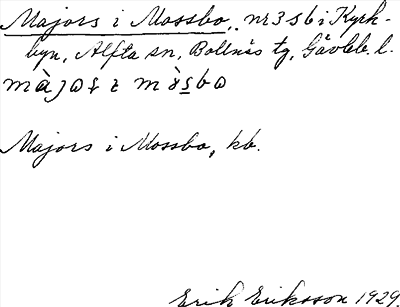 Majors i Mossbo, nr 3 s6 i Kyrk-
byn, Alfta sn, Bollnäs tg, Gävleb. l.
Majors i Mossbo, kb.
Erik Eriksson 1929.